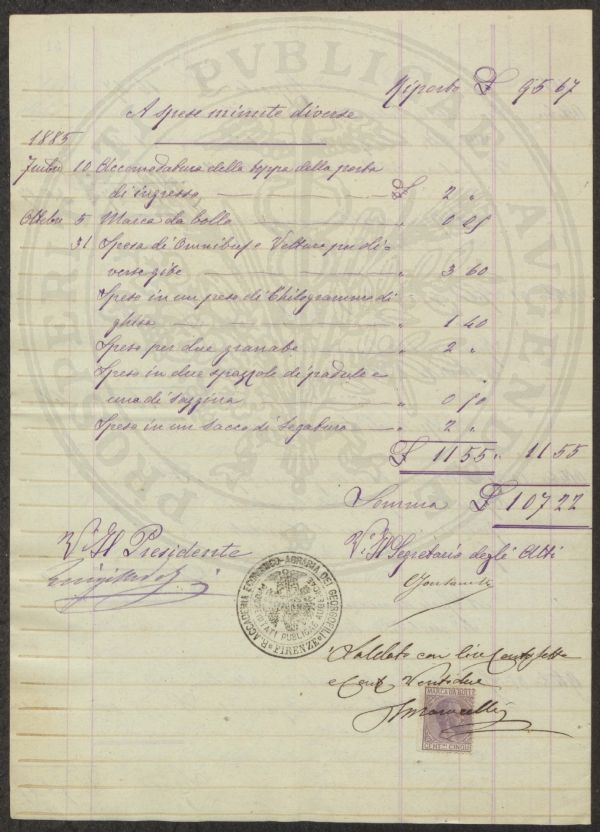 Riporto £ 95 67
A spese minute diverse
1885
10 Accomodatura della toppa della porta
di ingresso £ 2 "
Ottobre 5 Marca da bollo " 0 05
31 Spesa di Omnibus e Vetture per di=
verse gite " 3 60
Spese in un peso di Chilogrammo di
ghisa " 1 40
Spese per due granate " 2 "
Spese in due spazzole di padule e "
una di saggina " 0 50
Spese in un sacco di segatura " 2 "
£ 11 55 " 11 55
Somma £ 107 22
V. Il Presidente
V. Il Segretario degli Atti
R. ACCADEMIA ECONOMICO-AGRARIA DEI GEORGOFILI
FIRENZE
PROSPERITATI PUBLICAE AUGENDAE
Saldato con lire Centosette
e Cent. Ventidue
MARCA DA BOLLO
CENT. CINQUE
PROSPERITATI PVBLICAE AVGENDAE